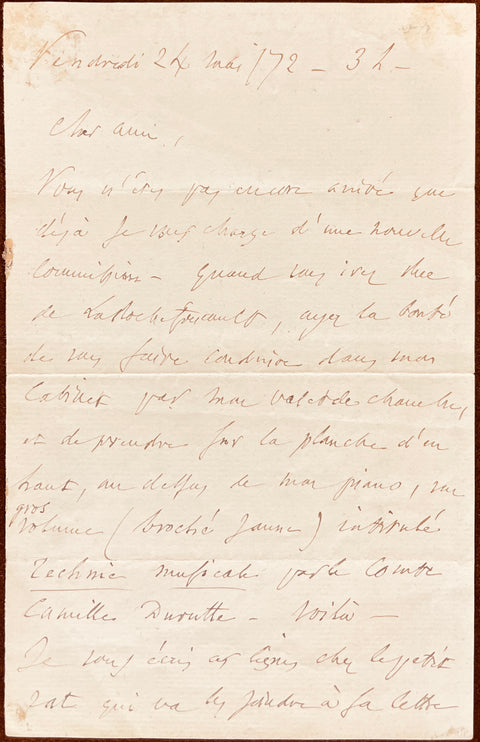 Vendredi 24 mai /72 – 3 h –
Cher ami,
Vous n'êtes pas encore arrivé que
déjà je vous charge d'une nouvelle
commission – quand vous irez rue
de LaRochefoucault, ayez la bonté
de vous faire conduire dans mon
Cabinet par mon valet de chambre,
et de prendre sur la planche d'en
haut, au dessus de mon piano, un
gros
volume (broché jaune) intitulé
Technie musicale par le Comte
Camille Durutte – voilà –
Je vous écris ces lignes chez le petit
rat qui va les joindre à sa lettre